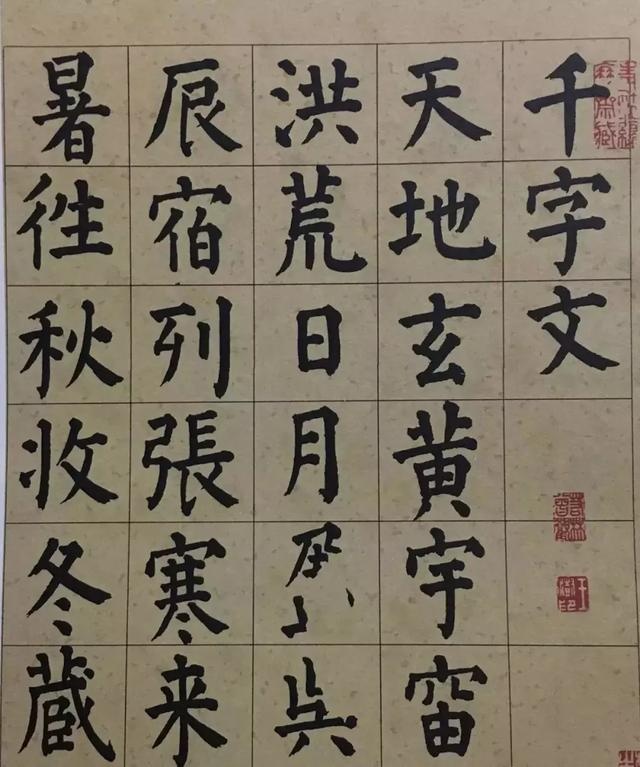 千字文
天地玄黄宇宙
洪荒日月
辰宿列張寒来
暑徃秋收冬蔵